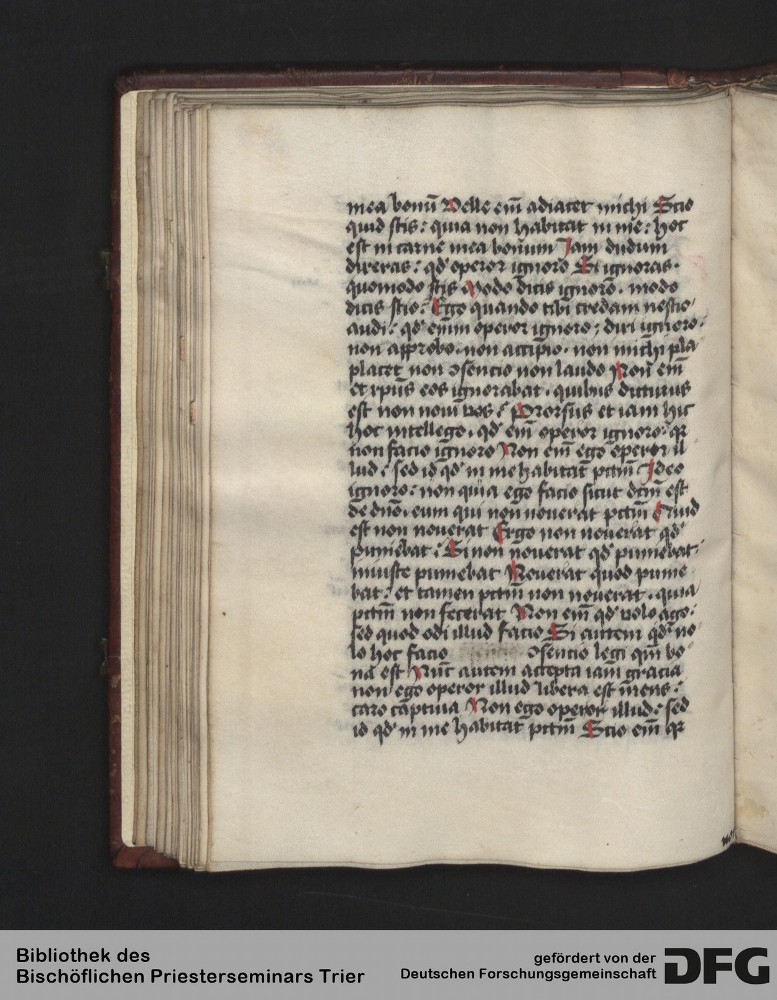 mea bonū Velle em̄ adiacet michi Scio
quid scis : quia non habitat in me : hoc
est in carne mea bonum Iam dudum
dixeras : qd' operor ignoro Si ignoras .
quomodo scis Modo dicis ignoro . modo
dicis scio : Ego quando tibi credam nescio
audi : qd' enim operor ignoro ; dixi ignoro .
non approbo . non accipio . non michi pla
placet non ɔsencio non laudo Non em̄
et xpūs eos ignorabat . quibus dicturus
est non noui vos : Prorsus et iam hic
hoc intellego . qd' em̄ operor ignoro : qr
non facio ignoro Non em̄ ego operor il
lud : sed id qd' in me habitat pctm̄ Ideo
ignoro : non quia ego facio sicut dctm̄ est
de dn̄o . eum qui non nouerat pctm̄ Quid
est non nouerat Ergo non nouerat qd'
puniebat : Si non nouerat qd' puniebat :
iniuste puniebat Nouerat quod punie
bat : et tamen pctm̄ non nouerat . quia
pctm̄ non fecerat Non em̄ qd' volo ago :
sed quod odi illud facio Si autem qd' no
lo hoc facio ɔsencio legi qm̄ bo
na est Nūc autem accepta iam gracia
non ego operor illud libera est mens :
caro captiua Non ego operor illud : sed
id qd' in me habitat pctm̄ Scio em̄ qr
Bibliothek des
Bischöflichen Priesterseminars Trier
gefördert von der
Deutschen Forschungsgemeinschaft
DFG